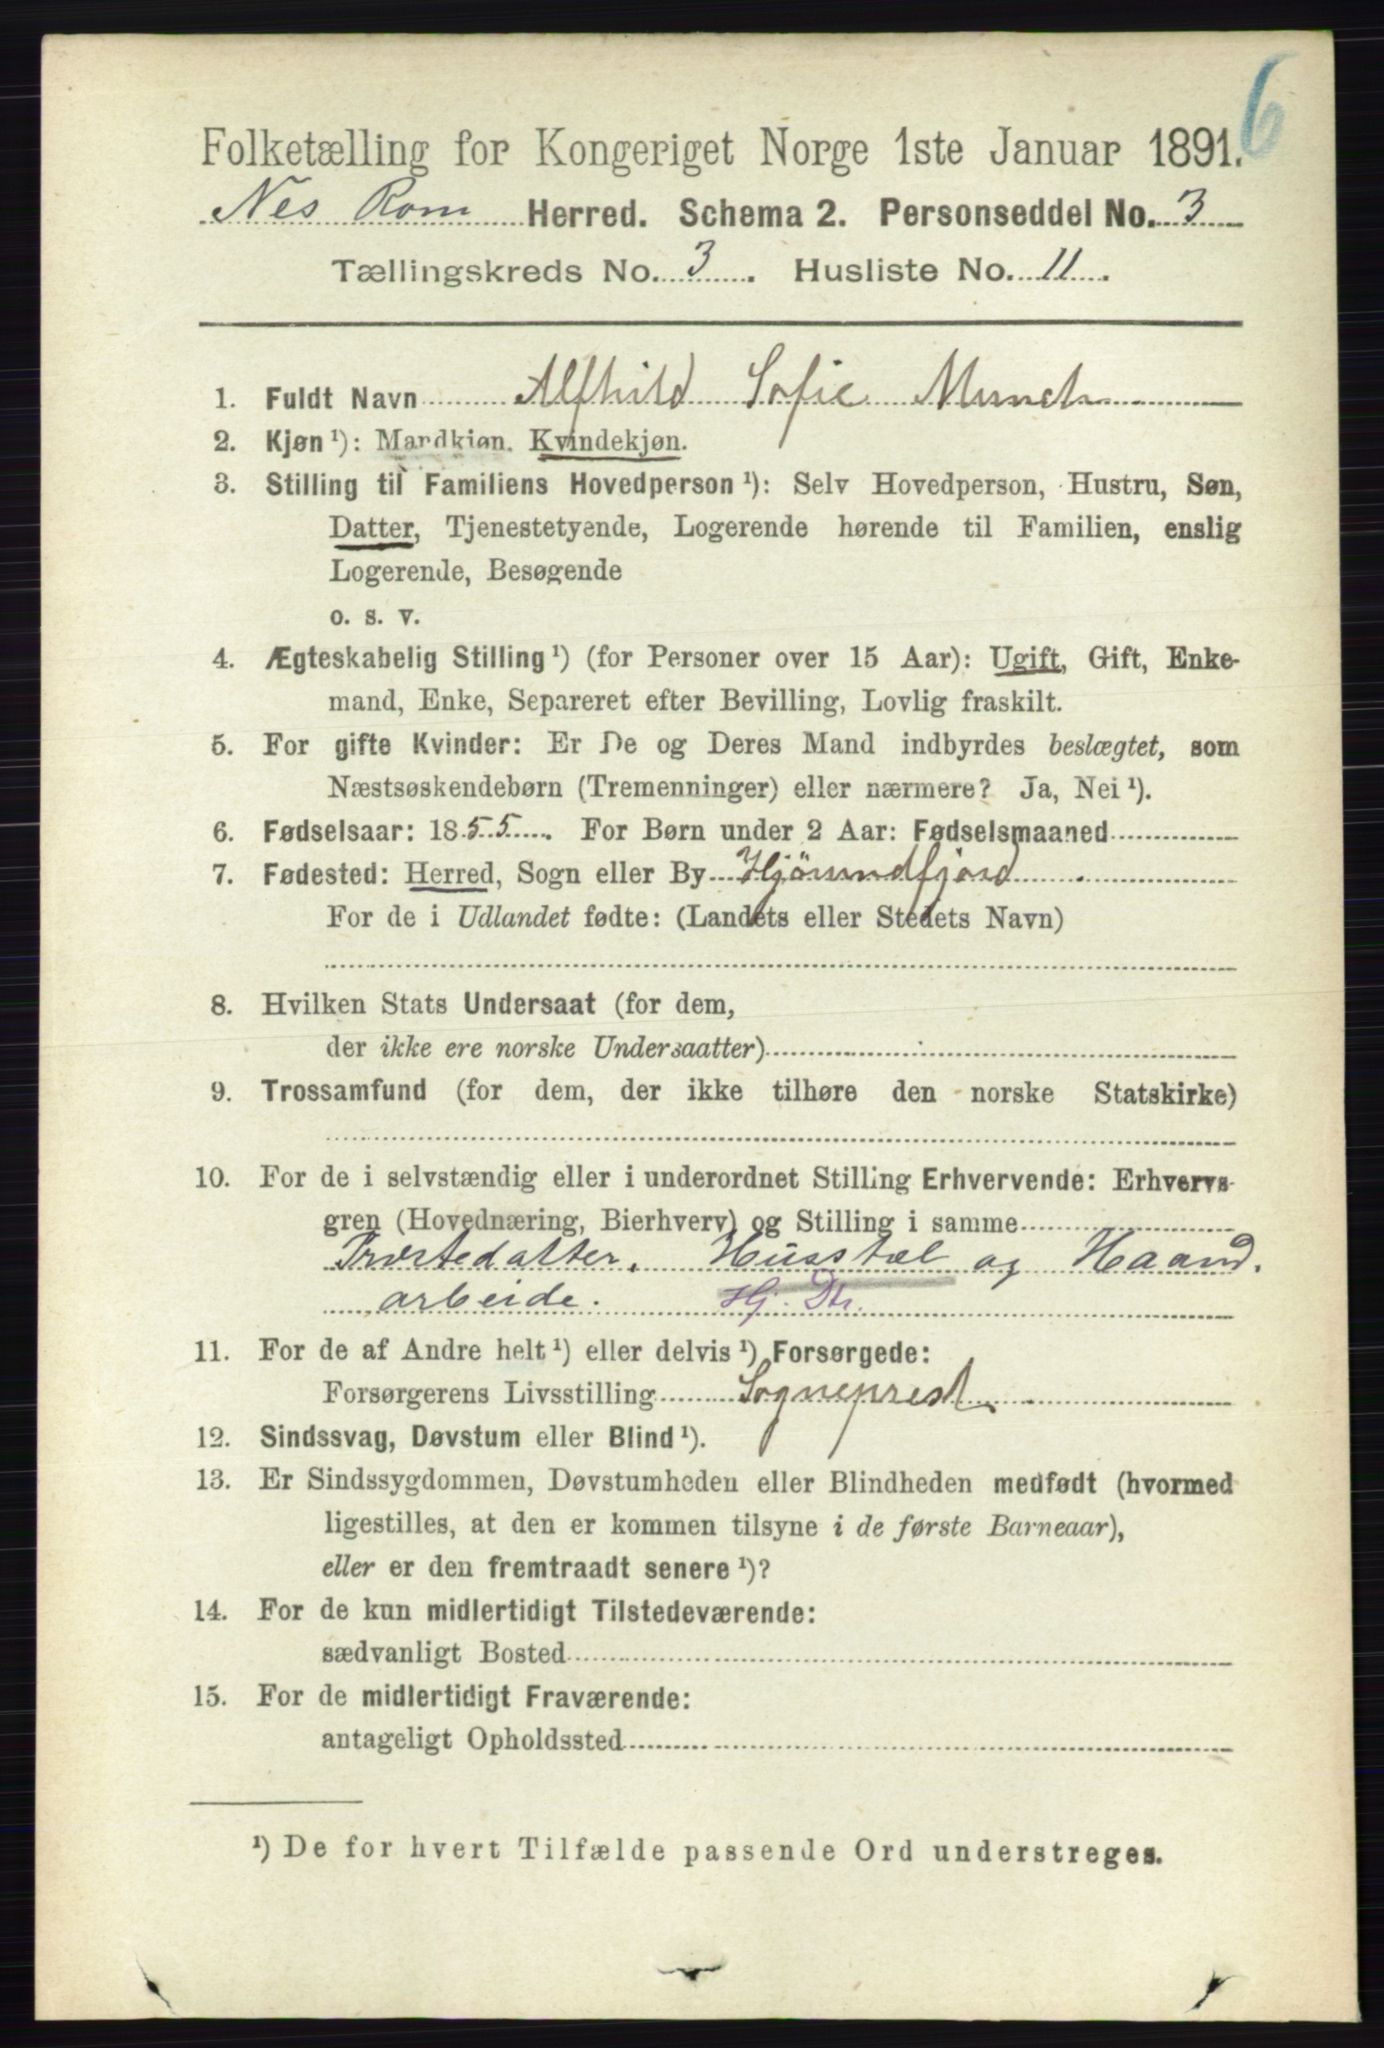 6
Folketælling for Kongeriget Norge 1ste Januar 1891.
Nes Rom Herred. Schema 2. Personseddel No. 3
Tællingskreds No. 3. Husliste No. 11.
1. Fuldt Navn Alfhild Sofie Munch
2. Kjøn ¹): Mandkjøn. Kvindekjøn.
3. Stilling til Familiens Hovedperson ¹): Selv Hovedperson, Hustru, Søn,
Datter, Tjenestetyende, Logerende hørende til Familien, enslig
Logerende, Besøgende
o. s. v.
4. Ægteskabelig Stilling ¹) (for Personer over 15 Aar): Ugift, Gift, Enke-
mand, Enke, Separeret efter Bevilling, Lovlig fraskilt.
5. For gifte Kvinder: Er De og Deres Mand indbyrdes beslægtet, som
Næstsøskendebørn (Tremenninger) eller nærmere? Ja, Nei ¹).
6. Fødselsaar: 1855. For Børn under 2 Aar: Fødselsmaaned
7. Fødested: Herred, Sogn eller By Hjörundfjord
For de i Udlandet fødte: (Landets eller Stedets Navn)
8. Hvilken Stats Undersaat (for dem,
der ikke ere norske Undersaatter)
9. Trossamfund (for dem, der ikke tilhøre den norske Statskirke)
10. For de i selvstændig eller i underordnet Stilling Erhvervende: Erhvervs-
gren (Hovednæring, Bierhverv) og Stilling i samme
Præstedatter. Husstæl og Haand.
arbeide. Hj. Dtr.
11. For de af Andre helt ¹) eller delvis ¹) Forsørgede:
Forsørgerens Livsstilling Sogneprest
12. Sindssvag, Døvstum eller Blind ¹).
13. Er Sindssygdommen, Døvstumheden eller Blindheden medfødt (hvormed
ligestilles, at den er kommen tilsyne i de første Barneaar),
eller er den fremtraadt senere ¹)?
14. For de kun midlertidigt Tilstedeværende:
sædvanligt Bosted
15. For de midlertidigt Fraværende:
antageligt Opholdssted
¹) De for hvert Tilfælde passende Ord understreges.